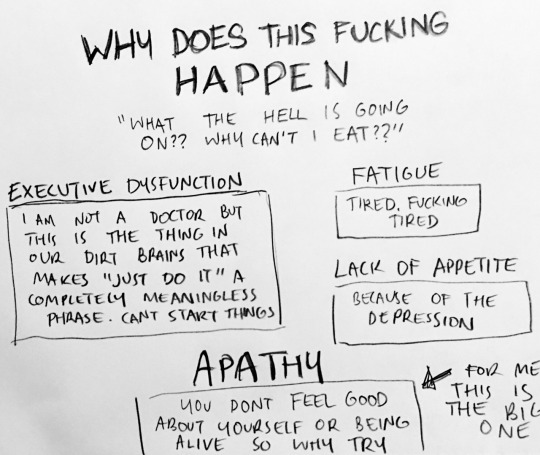 WHY DOES THIS FUCKING
HAPPEN
"WHAT THE HELL IS GOING
ON?? WHY CAN'T I EAT??"
EXECUTIVE DYSFUNCTION
I AM NOT A DOCTOR BUT
THIS IS THE THING IN
OUR DIRT BRAINS THAT
MAKES "JUST DO IT" A
COMPLETELY MEANINGLESS
PHRASE. CANT START THINGS
FATIGUE
TIRED. FUCKING
TIRED
LACK OF APPETITE
BECAUSE OF THE
DEPRESSION
APATHY
YOU DONT FEEL GOOD
ABOUT YOURSELF OR BEING
ALIVE SO WHY TRY
FOR ME
THIS IS
THE BIG
ONE